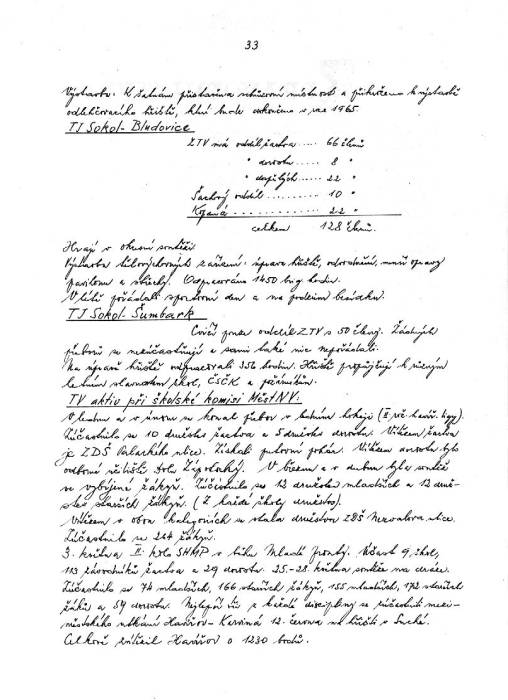 33
Výstavba: K šatnám přistavěna vchodová místnost a přikročeno k výstavbě
odlehčovacího hřiště, které bude dokončeno v roce 1965.
TJ Sokol - Bludovice
ZTV má oddíl žactva .... 66 členů
" dorostu ..... 8 "
" dospělých ...... 22 "
Šachový oddíl .......... 10 "
Kopaná ............. 22 "
celkem 128 členů.
Hrají v okresní soutěži.
Výstavba tělovýchovných zařízení: úprava hřiště, odvodnění, menší opravy
pavilonu a střechy. Odpracováno 1450 brig. hodin.
V létě pořádali sportovní den a na podzim besídku.
TJ Sokol - Šumbark
Cvičí pouze oddíl ZTV s 50 členy. Žádných
přeborů se nezúčastňují a sami také nic nepořádali.
Na úpravě hřiště odpracovali 352 hodin. Hřiště propůjčují k různým
letním slavnostem škol, ČSČK a požárníkům.
TV aktiv při školské komisi MěstNV.
V lednu a v únoru se konal přebor v ledním hokeji
Zúčastnilo se 10 družstev žactva a 5 družstev dorostu. Vítězem žactva
je ZDŠ Palackého ulice. Získali putovní pohár. Vítězem dorostu bylo
odborné učiliště Dolu Zápotocký. V březnu a v dubnu byla soutěž
ve vybíjené žákyň. Zúčastnilo se 12 družstev mladších a 12 druž-
stev starších žákyň. (Z každé školy družstvo).
Vítězem v obou kategoriích se stala družstva ZDŠ Nezvalova ulice.
Zúčastnilo se 264 žákyň.
3. května II. kolo SHMP o štítu Mladé fronty. Účast 9 škol,
113 závodníků žactva a 29 dorostu. 25.-28. května soutěž na dráze.
Zúčastnilo se 74 mladších, 166 starších žákyň, 155 mladších, 172 starších
žáků a 54 dorostu. Nejlepší z každé disciplíny se zúčastnili mezi-
městského utkání Havířov - Karviná 12. června na hřišti v Suché.
Celkově zvítězil Havířov o 1230 bodů.